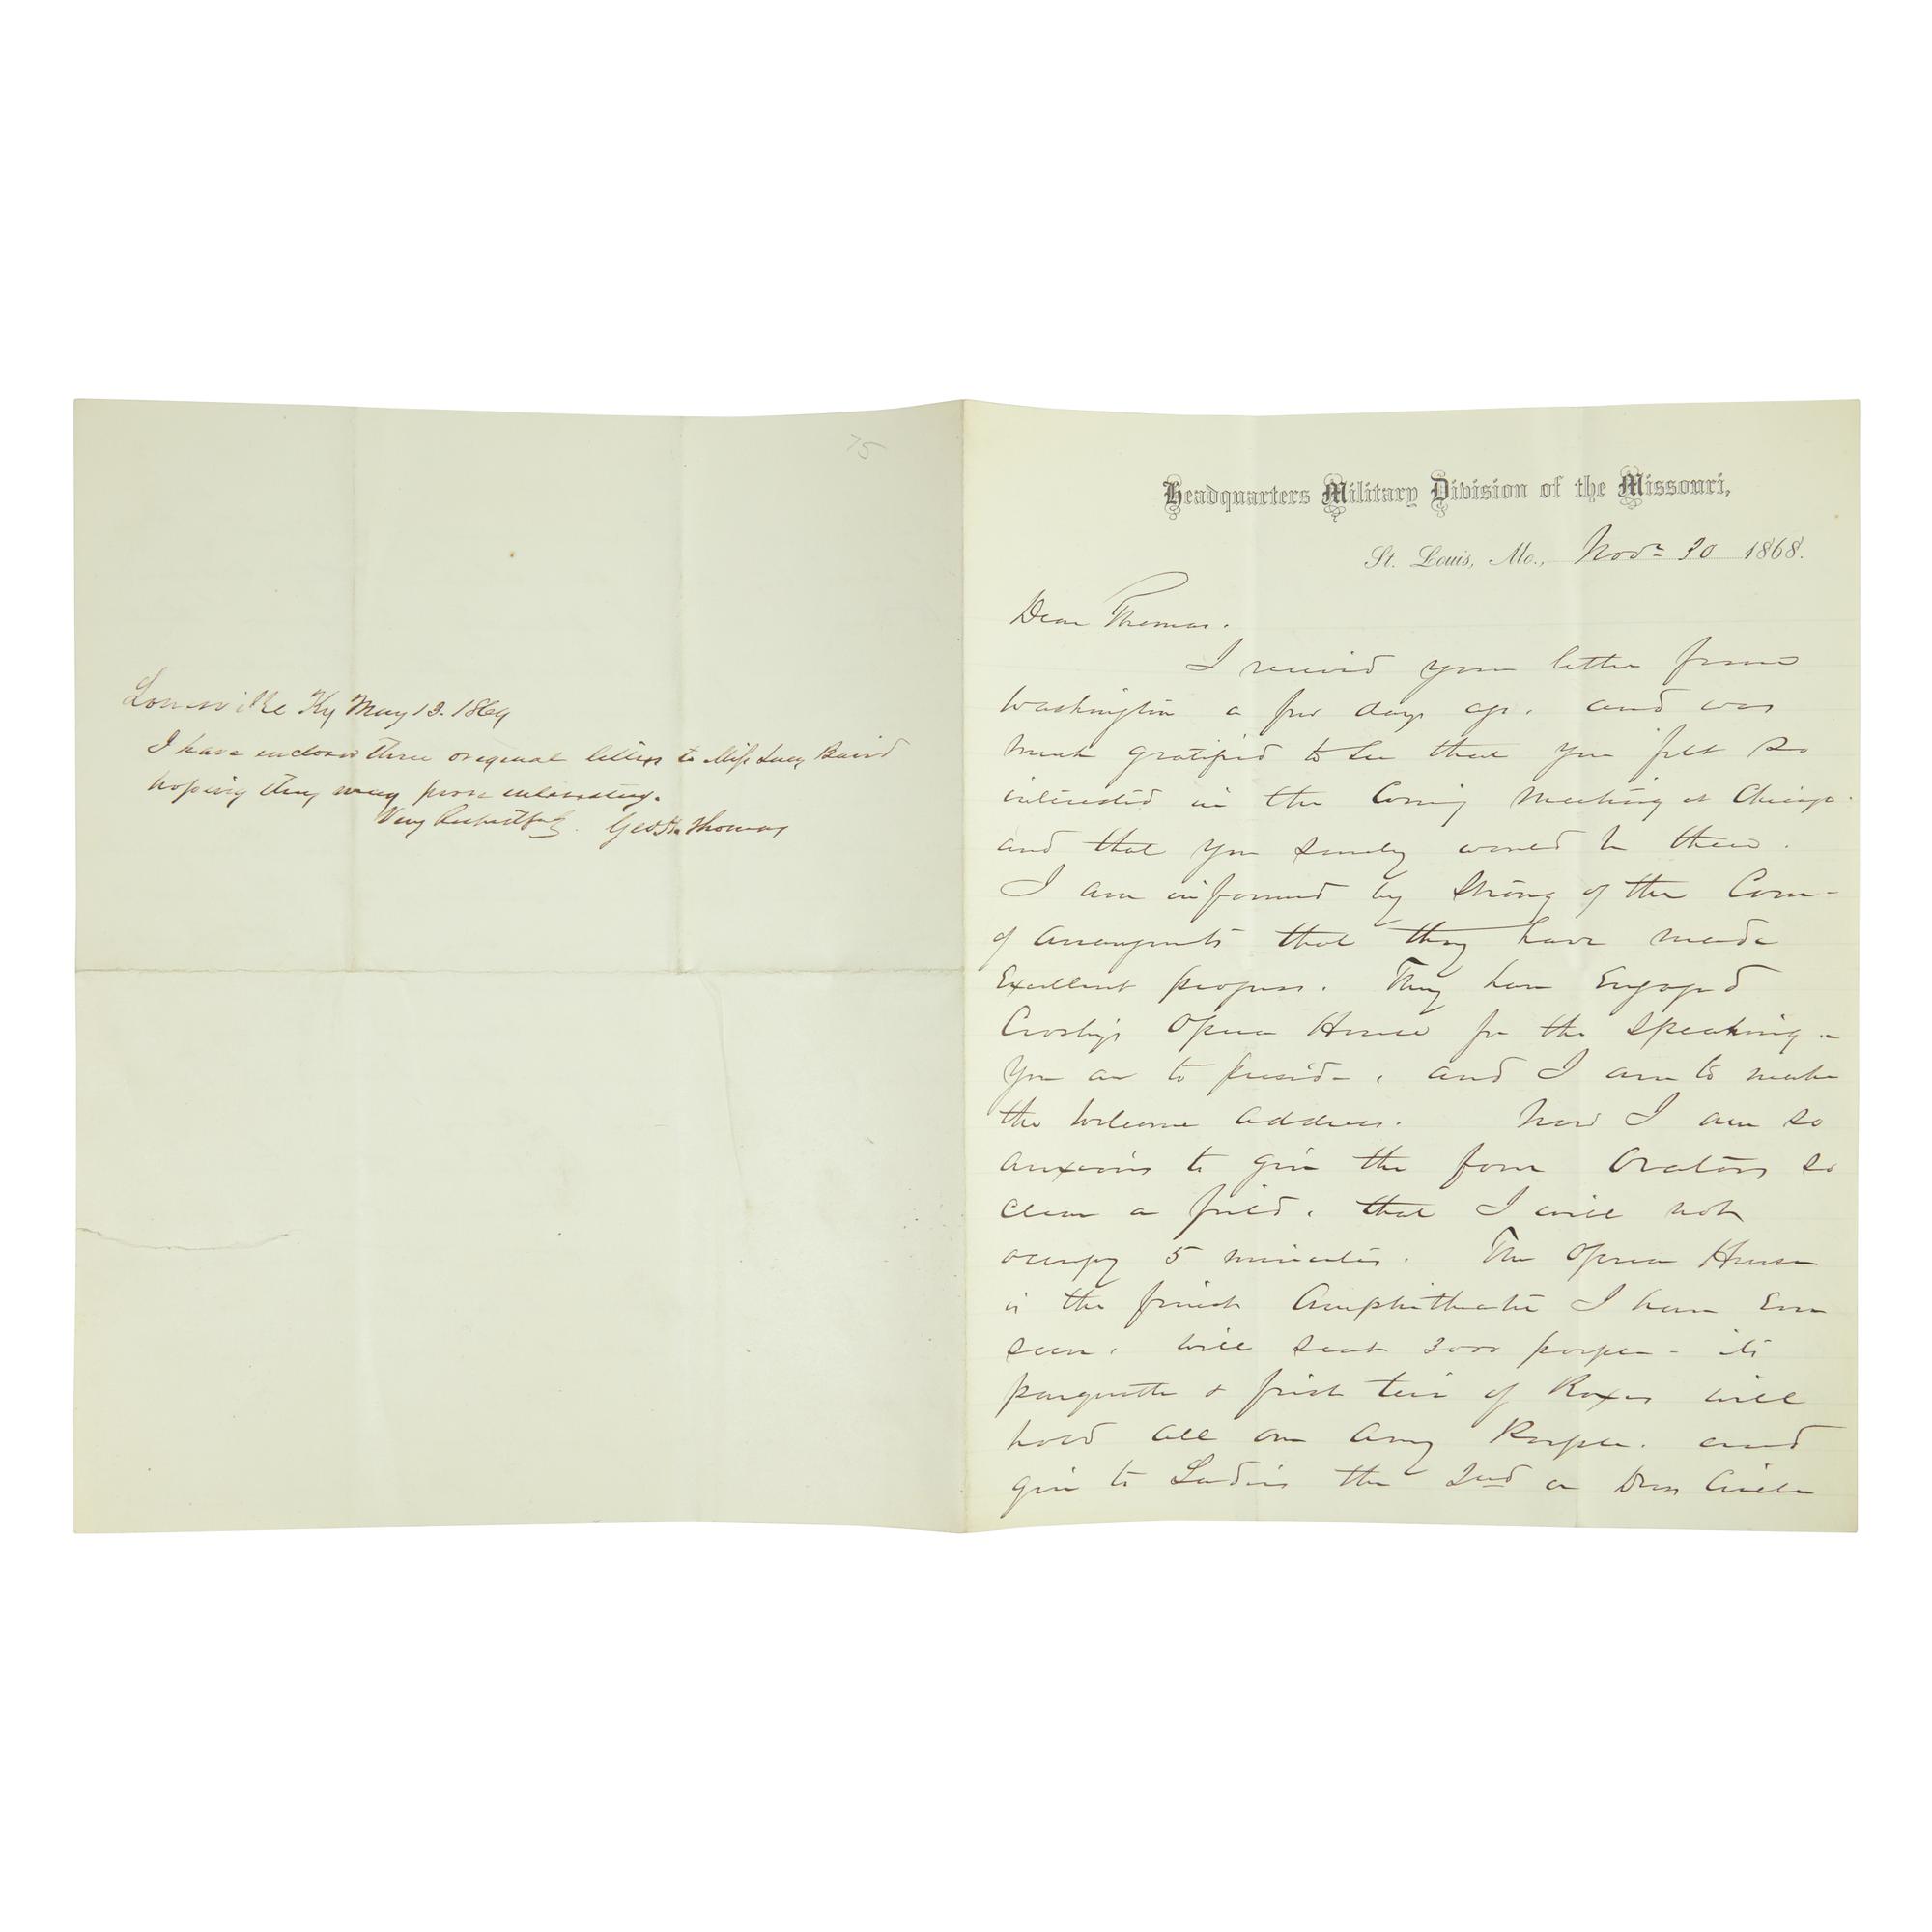 75
Louisville Ky May 13. 1869
I have enclosed three original letters to Miss Lucy Baird
hoping they may prove interesting.
Very Respectfully. Geo H. Thomas
Headquarters Military Division of the Missouri,
St. Louis, Mo., Nov. 30 1868.
Dear Thomas.
I received your letter from
Washington a few days ago. and was
much gratified to see that you felt so
interested in the Coming Meeting at Chicago.
and that you surely would be there.
I am informed by Strong of the Com-
of Arrangments that they have made
Excellent progress. They have Engaged
Crosby's Opera House for the Speaking -
You are to preside, and I am to make
the Welcome address. Now I am so
anxious to give the four Orators so
clear a field, that I will not
occupy 5 minutes. The Opera House
is the finest Amphitheatre I have Ever
seen, will seat 3000 people - its
parquette & first tier of Boxes will
hold all our Army People. and
give to Ladies the 2nd or Dress Circle